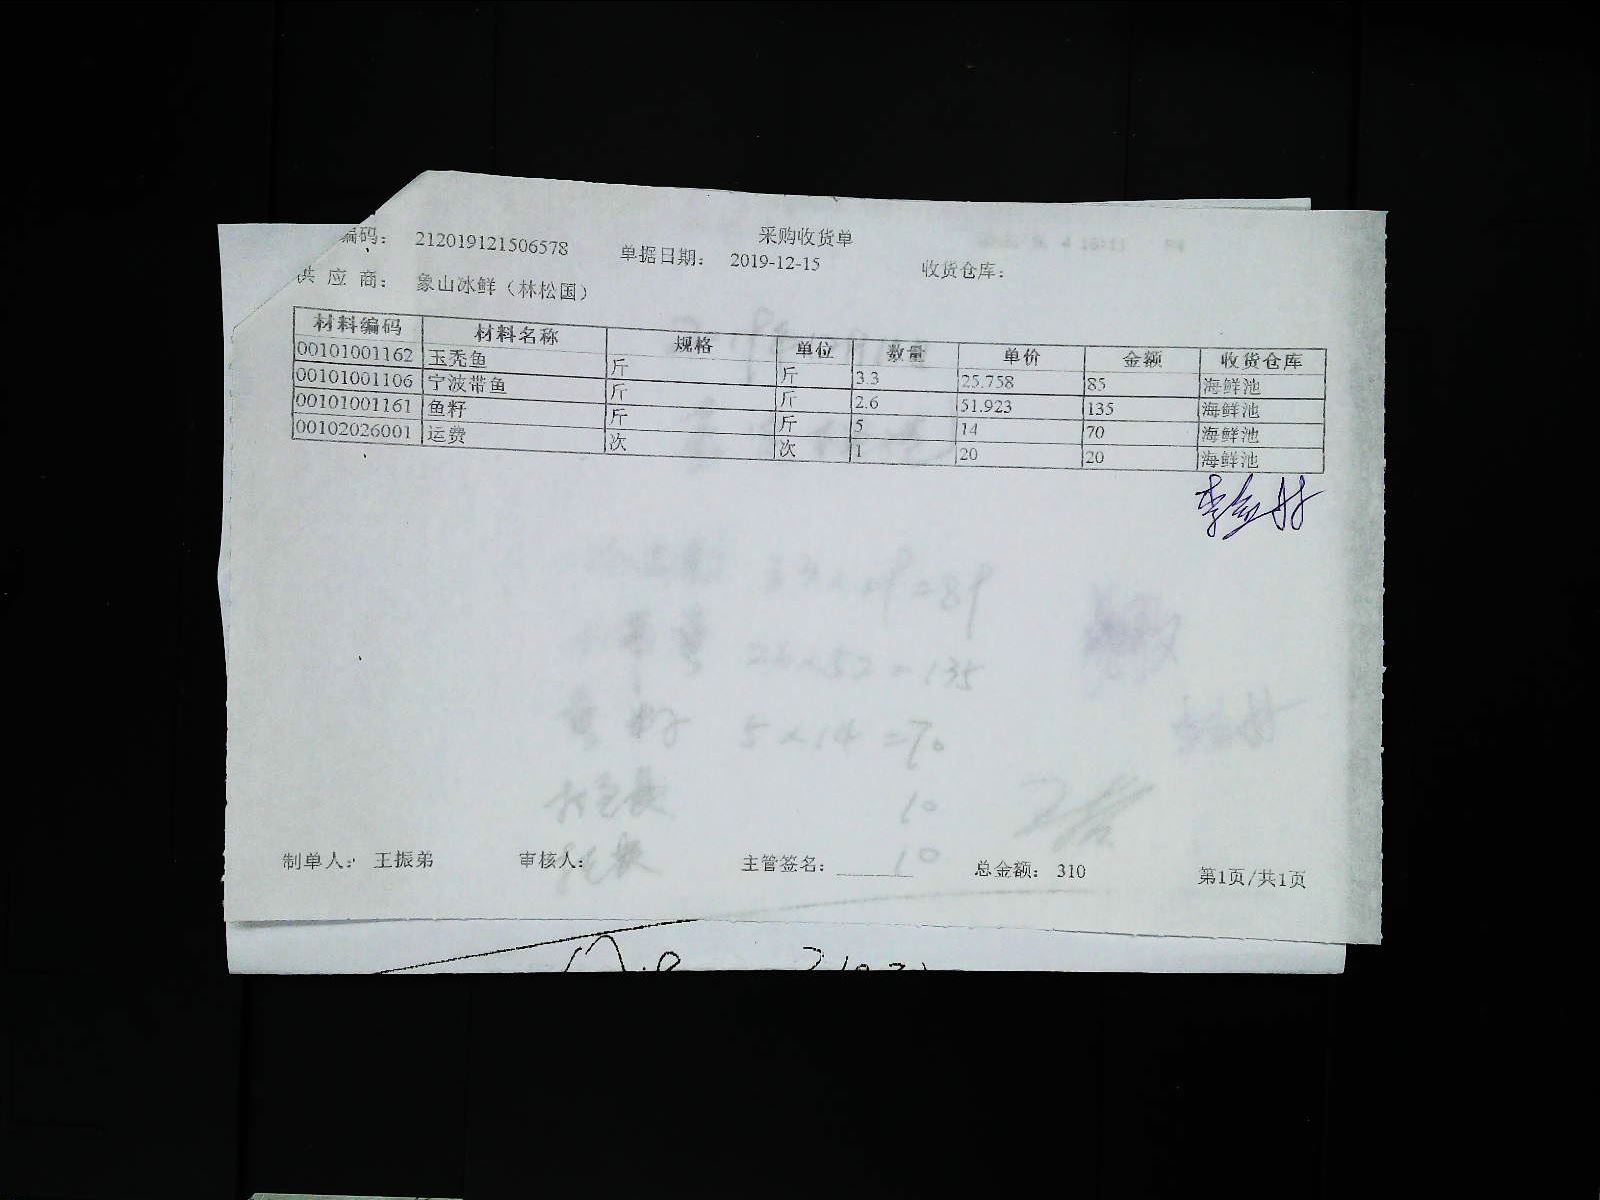 采购收货单
编码： 212019121506578 单据日期： 2019-12-15 收货仓库：
供 应 商： 象山冰鲜（林松国）
材料编码 材料名称 规格 单位 数量 单价 金额 收货仓库
00101001162 玉秃鱼 斤 斤 3.3 25.758 85 海鲜池
00101001106 宁波带鱼 斤 斤 2.6 51.923 135 海鲜池
00101001161 鱼籽 斤 斤 5 14 70 海鲜池
00102026001 运费 次 次 1 20 20 海鲜池
5×14=70
10
10
制单人： 王振弟 审核人： 主管签名： 总金额： 310 第1页/共1页